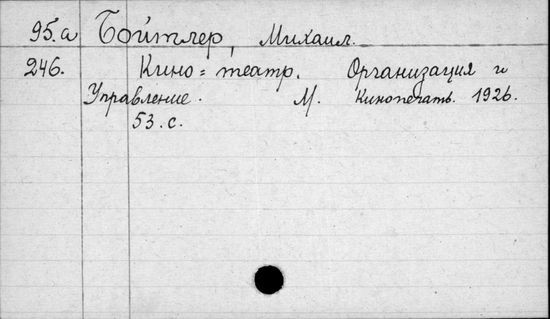 95.а Бойтлер, Михаил.
246. Кино=театр. Организация и
Управление. М. Кинопечать. 1926.
53. с.